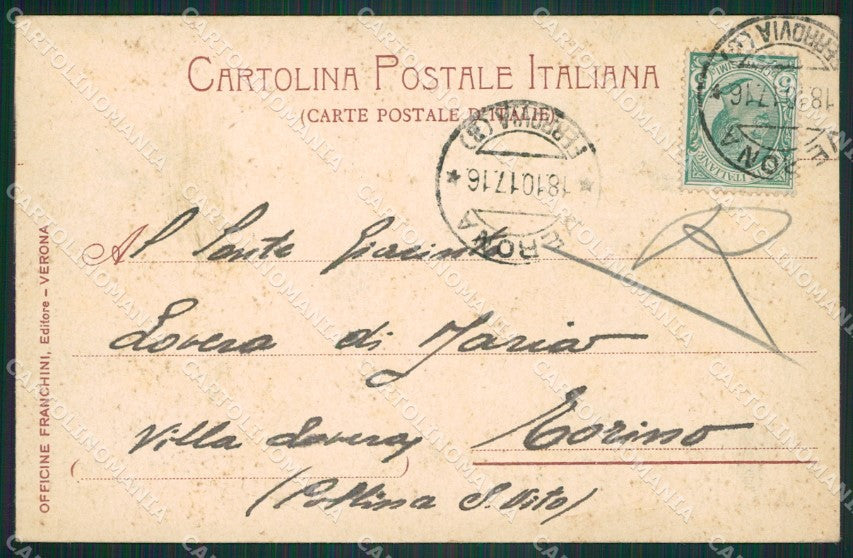 CARTOLINA POSTALE ITALIANA
(CARTE POSTALE D'ITALIE).
VERONA (FERROVIA)
18 10 17 16
VERONA FERROVIA
18 10 17 16
Al Conte Giacinto
Lovera di Maria
Villa Lovera Torino
(Collina S. Vito)
OFFICINE FRANCHINI, Editore - VERONA
CARTOLINOMANIA